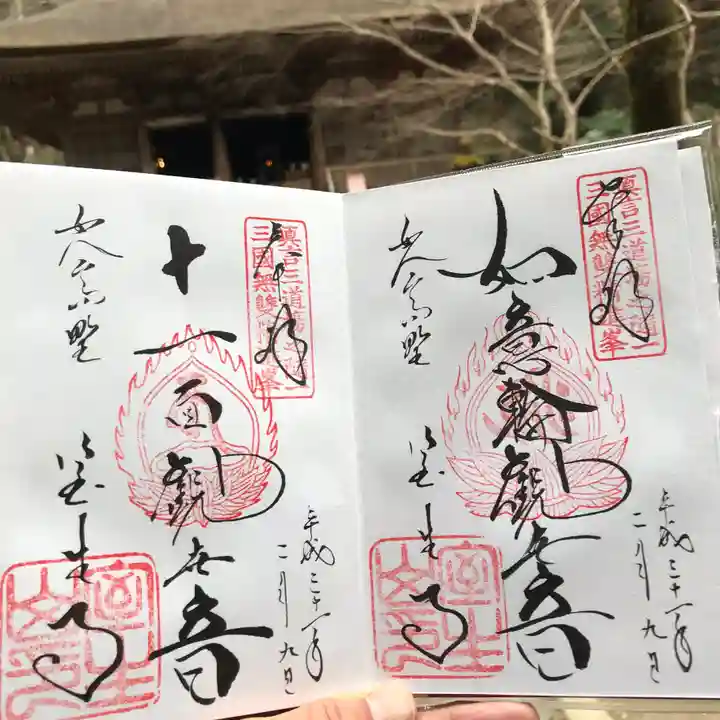 奉拝
真言三道場之随一
三国無雙精進峯
平成三十一年
二月九日
如意輪観世音
女人高野
室生寺
奉拝
平成三十一年
二月九日
十一面観世音
女人高野
室生寺